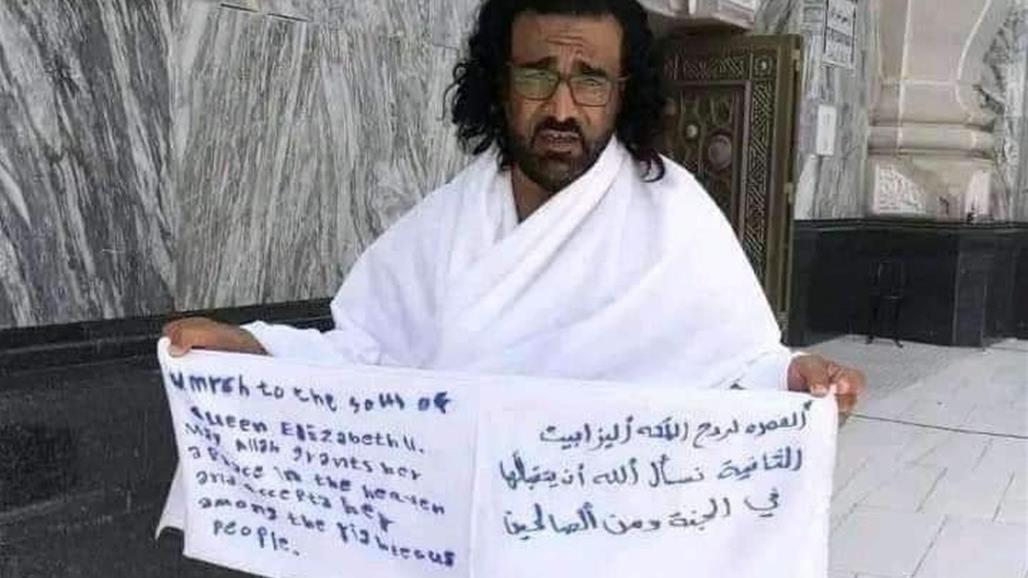 Umrah to the soul of
Queen Elizabeth II.
May Allah grants her
a place in the heaven
and accepts her
among the righteous
people.
ألعمره لروح الملكه أليزابيت
الثانية نسأل ألله أن يتقبلها
في الجنة ومن ألصالحين